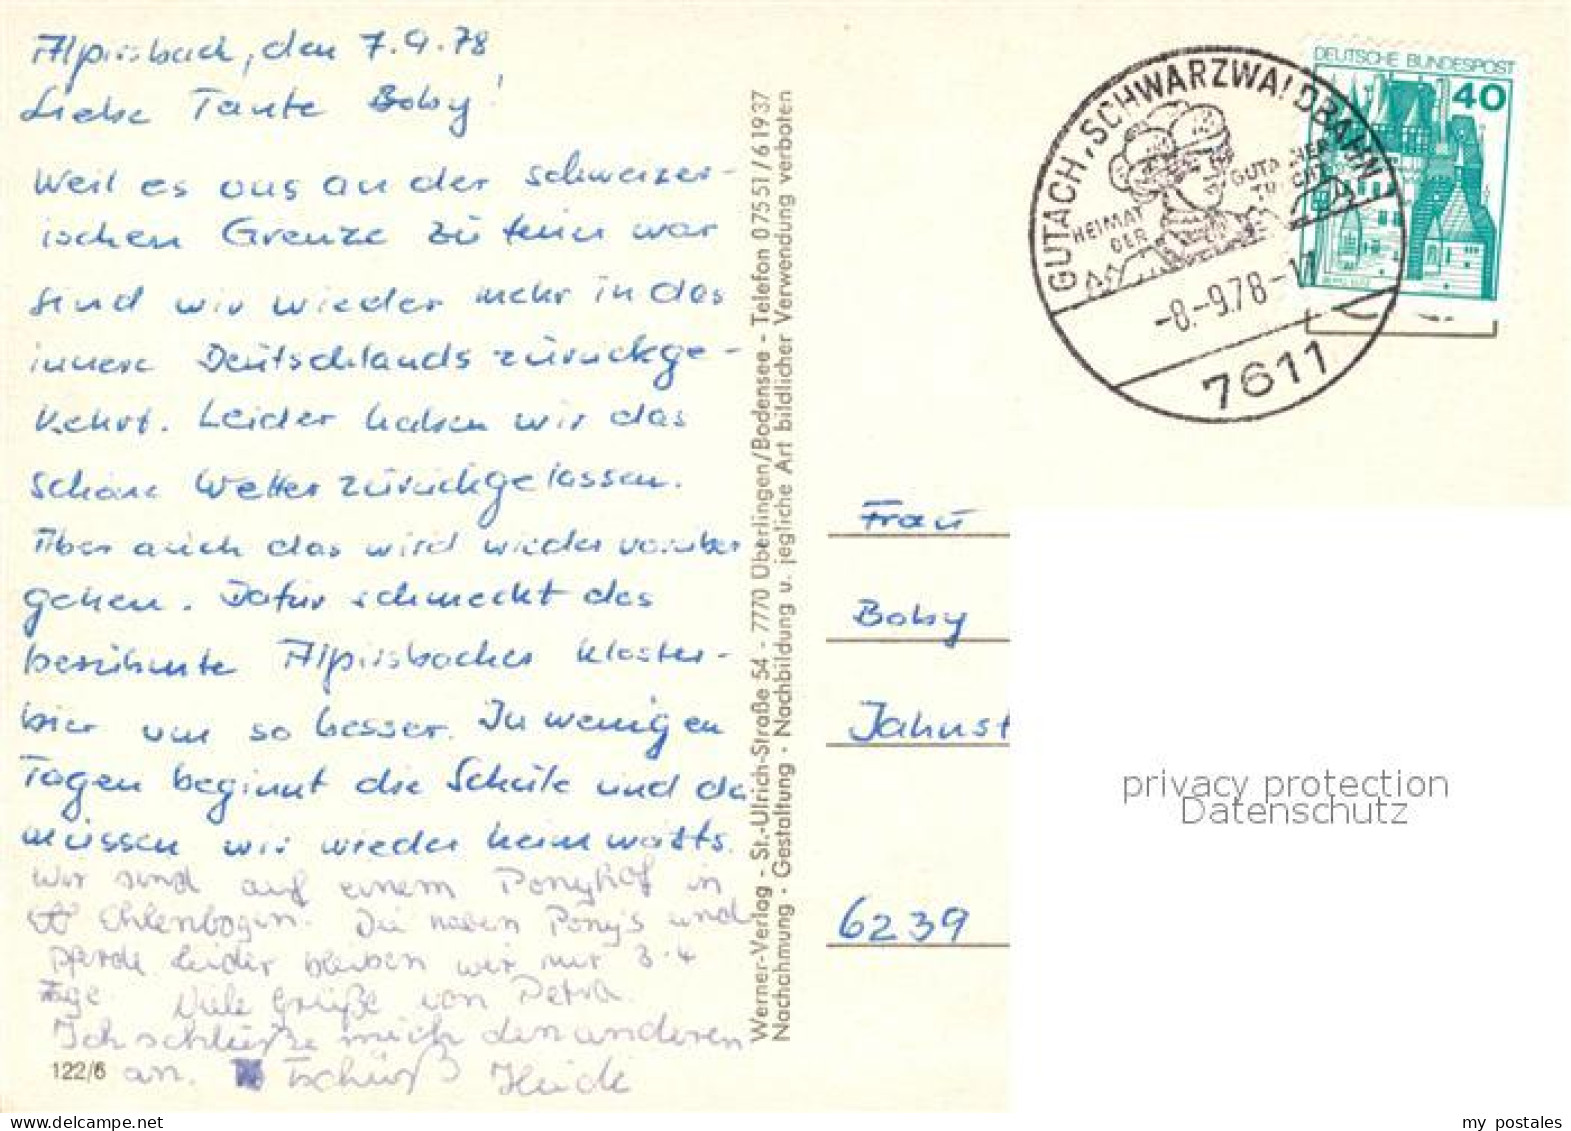 Alpirsbach, den 7.9.78
Liebe Tante Boby!
Weil es aus an der schweizer-
ischen Grenze zu teuer war
sind wir wieder mehr in das
innere Deutschlands zurückge-
kehrt. Leider haben wir das
schöne Wetter zurückgelassen.
Aber auch das wird wieder vorüber
gehen. Dafür schmeckt das
berühmte Alpirsbacher Kloster-
bier um so besser. In wenigen
Tagen beginnt die Schule und da
müssen wir wieder heimwärts.
Wir sind auf einem Ponyhof in
Ehlenbogen. Die haben Pony's und
Pferde leider bleiben wir nur 3-4
Tage Viele Grüße von Petra.
Ich schließe mich den anderen
an. Tschüß Heide
122/6
Werner-Verlag - St.-Ulrich-Straße 54 - 7770 Überlingen/Bodensee - Telefon 07551/61937
Nachahmung - Gestaltung - Nachbildung u. jegliche Art bildlicher Verwendung verboten
GUTACH, SCHWARZWALDBAHN
HEIMAT
DER
GUTACHER
TRACHT
-8.-9.78-17
7611
DEUTSCHE BUNDESPOST
40
Frau
Boby
Jahnst
6239
privacy protection
Datenschutz
my postales